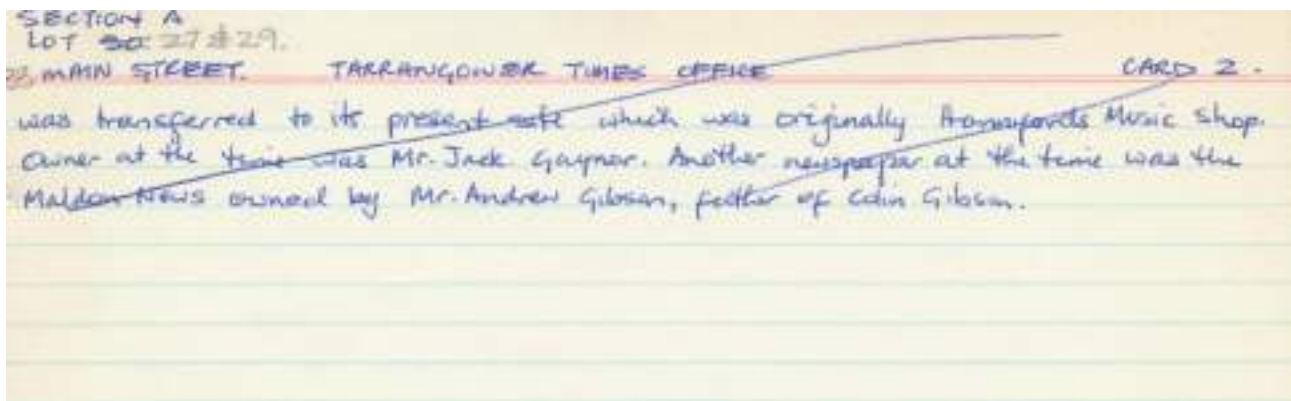 SECTION A
LOT 27 & 29.
MAIN STREET. TARRANGOWER TIMES OFFICE CARD 2.
was transferred to its present site which was originally Music Shop.
Owner at the time was Mr. Jack Gaynor. Another newspaper at the time was the
Maldon News owned by Mr. Andrew Gibson, father of Colin Gibson.